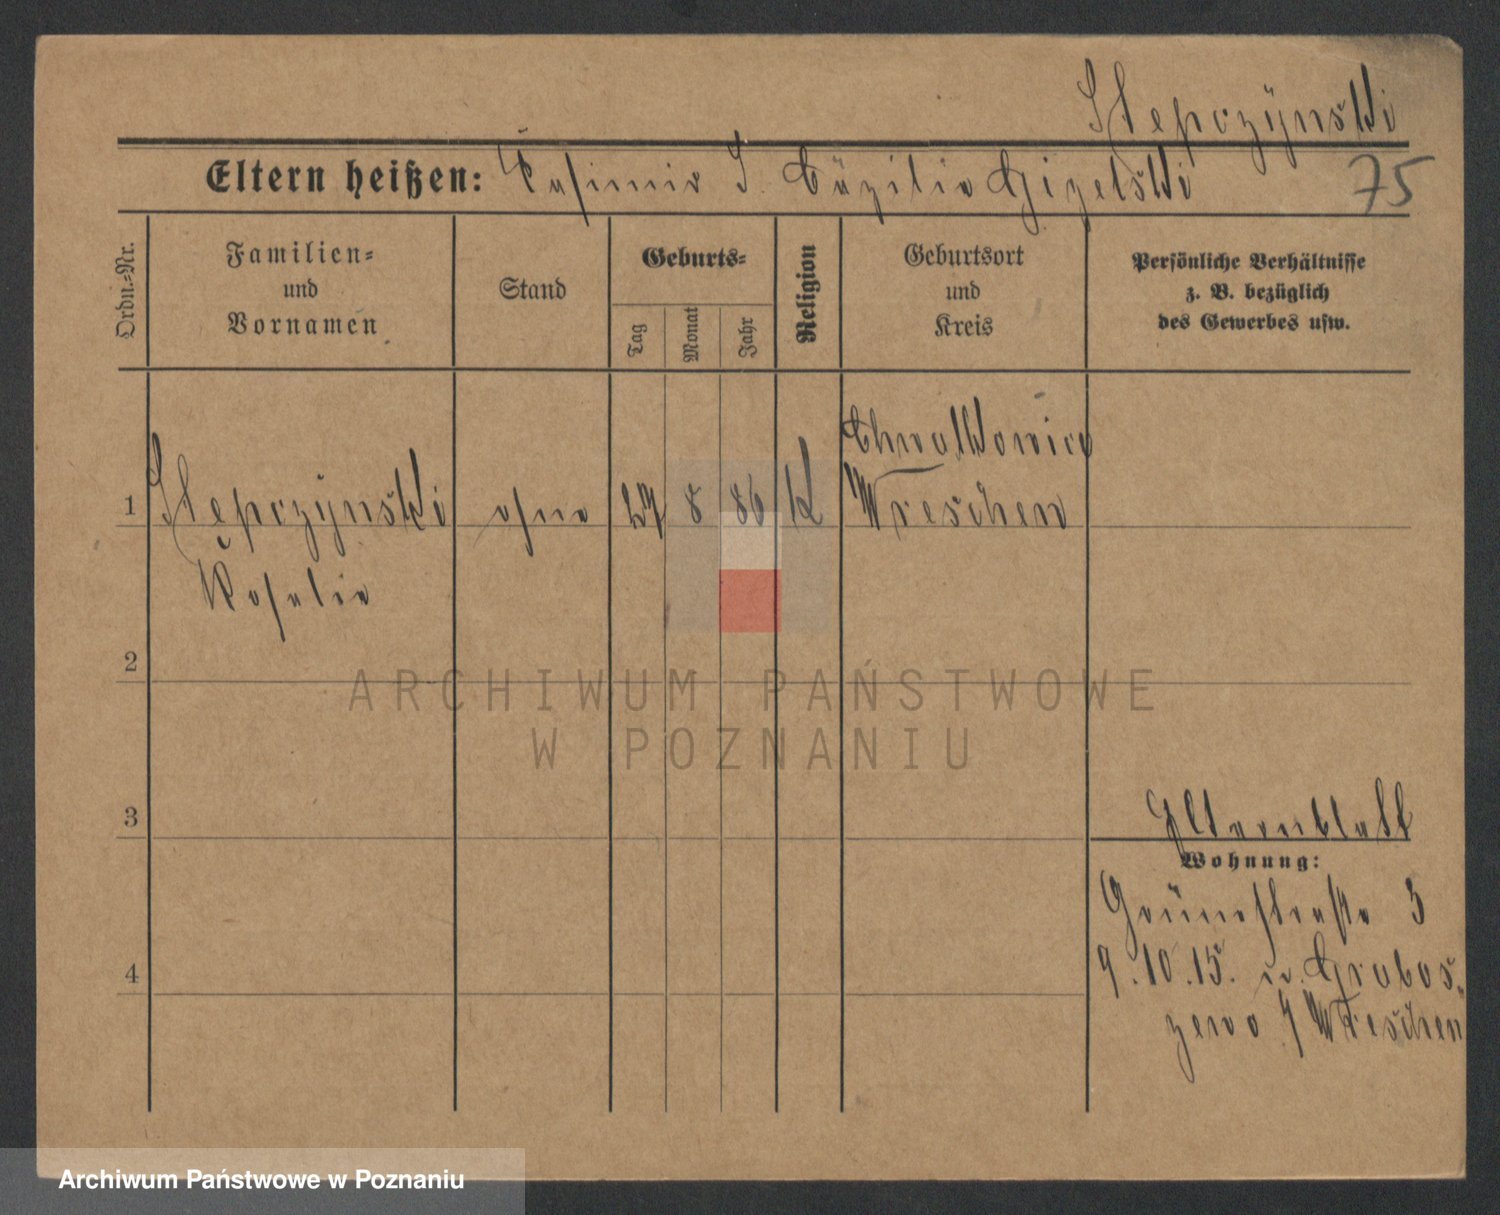 Stęprzyński
Eltern heißen: Kasimir S. Cäzilie Gizelski
75
Ordn.-Nr.
Familien-
und
Vornamen
Stand
Geburts-
Tag
Monat
Jahr
Religion
Geburtsort
und
Kreis
Persönliche Verhältnisse
z. B. bezüglich
des Gewerbes usw.
Chwalkowice
1 Stęprzyński ohne 27 8 86 K Wreschen
Rosalie
2
ARCHIWUM PAŃSTWOWE
W POZNANIU
3
Elternblatt
Wohnung:
Grünestraße 3
4
9.10.15. n. Grabos-
zewo Wreschen
Archiwum Państwowe w Poznaniu